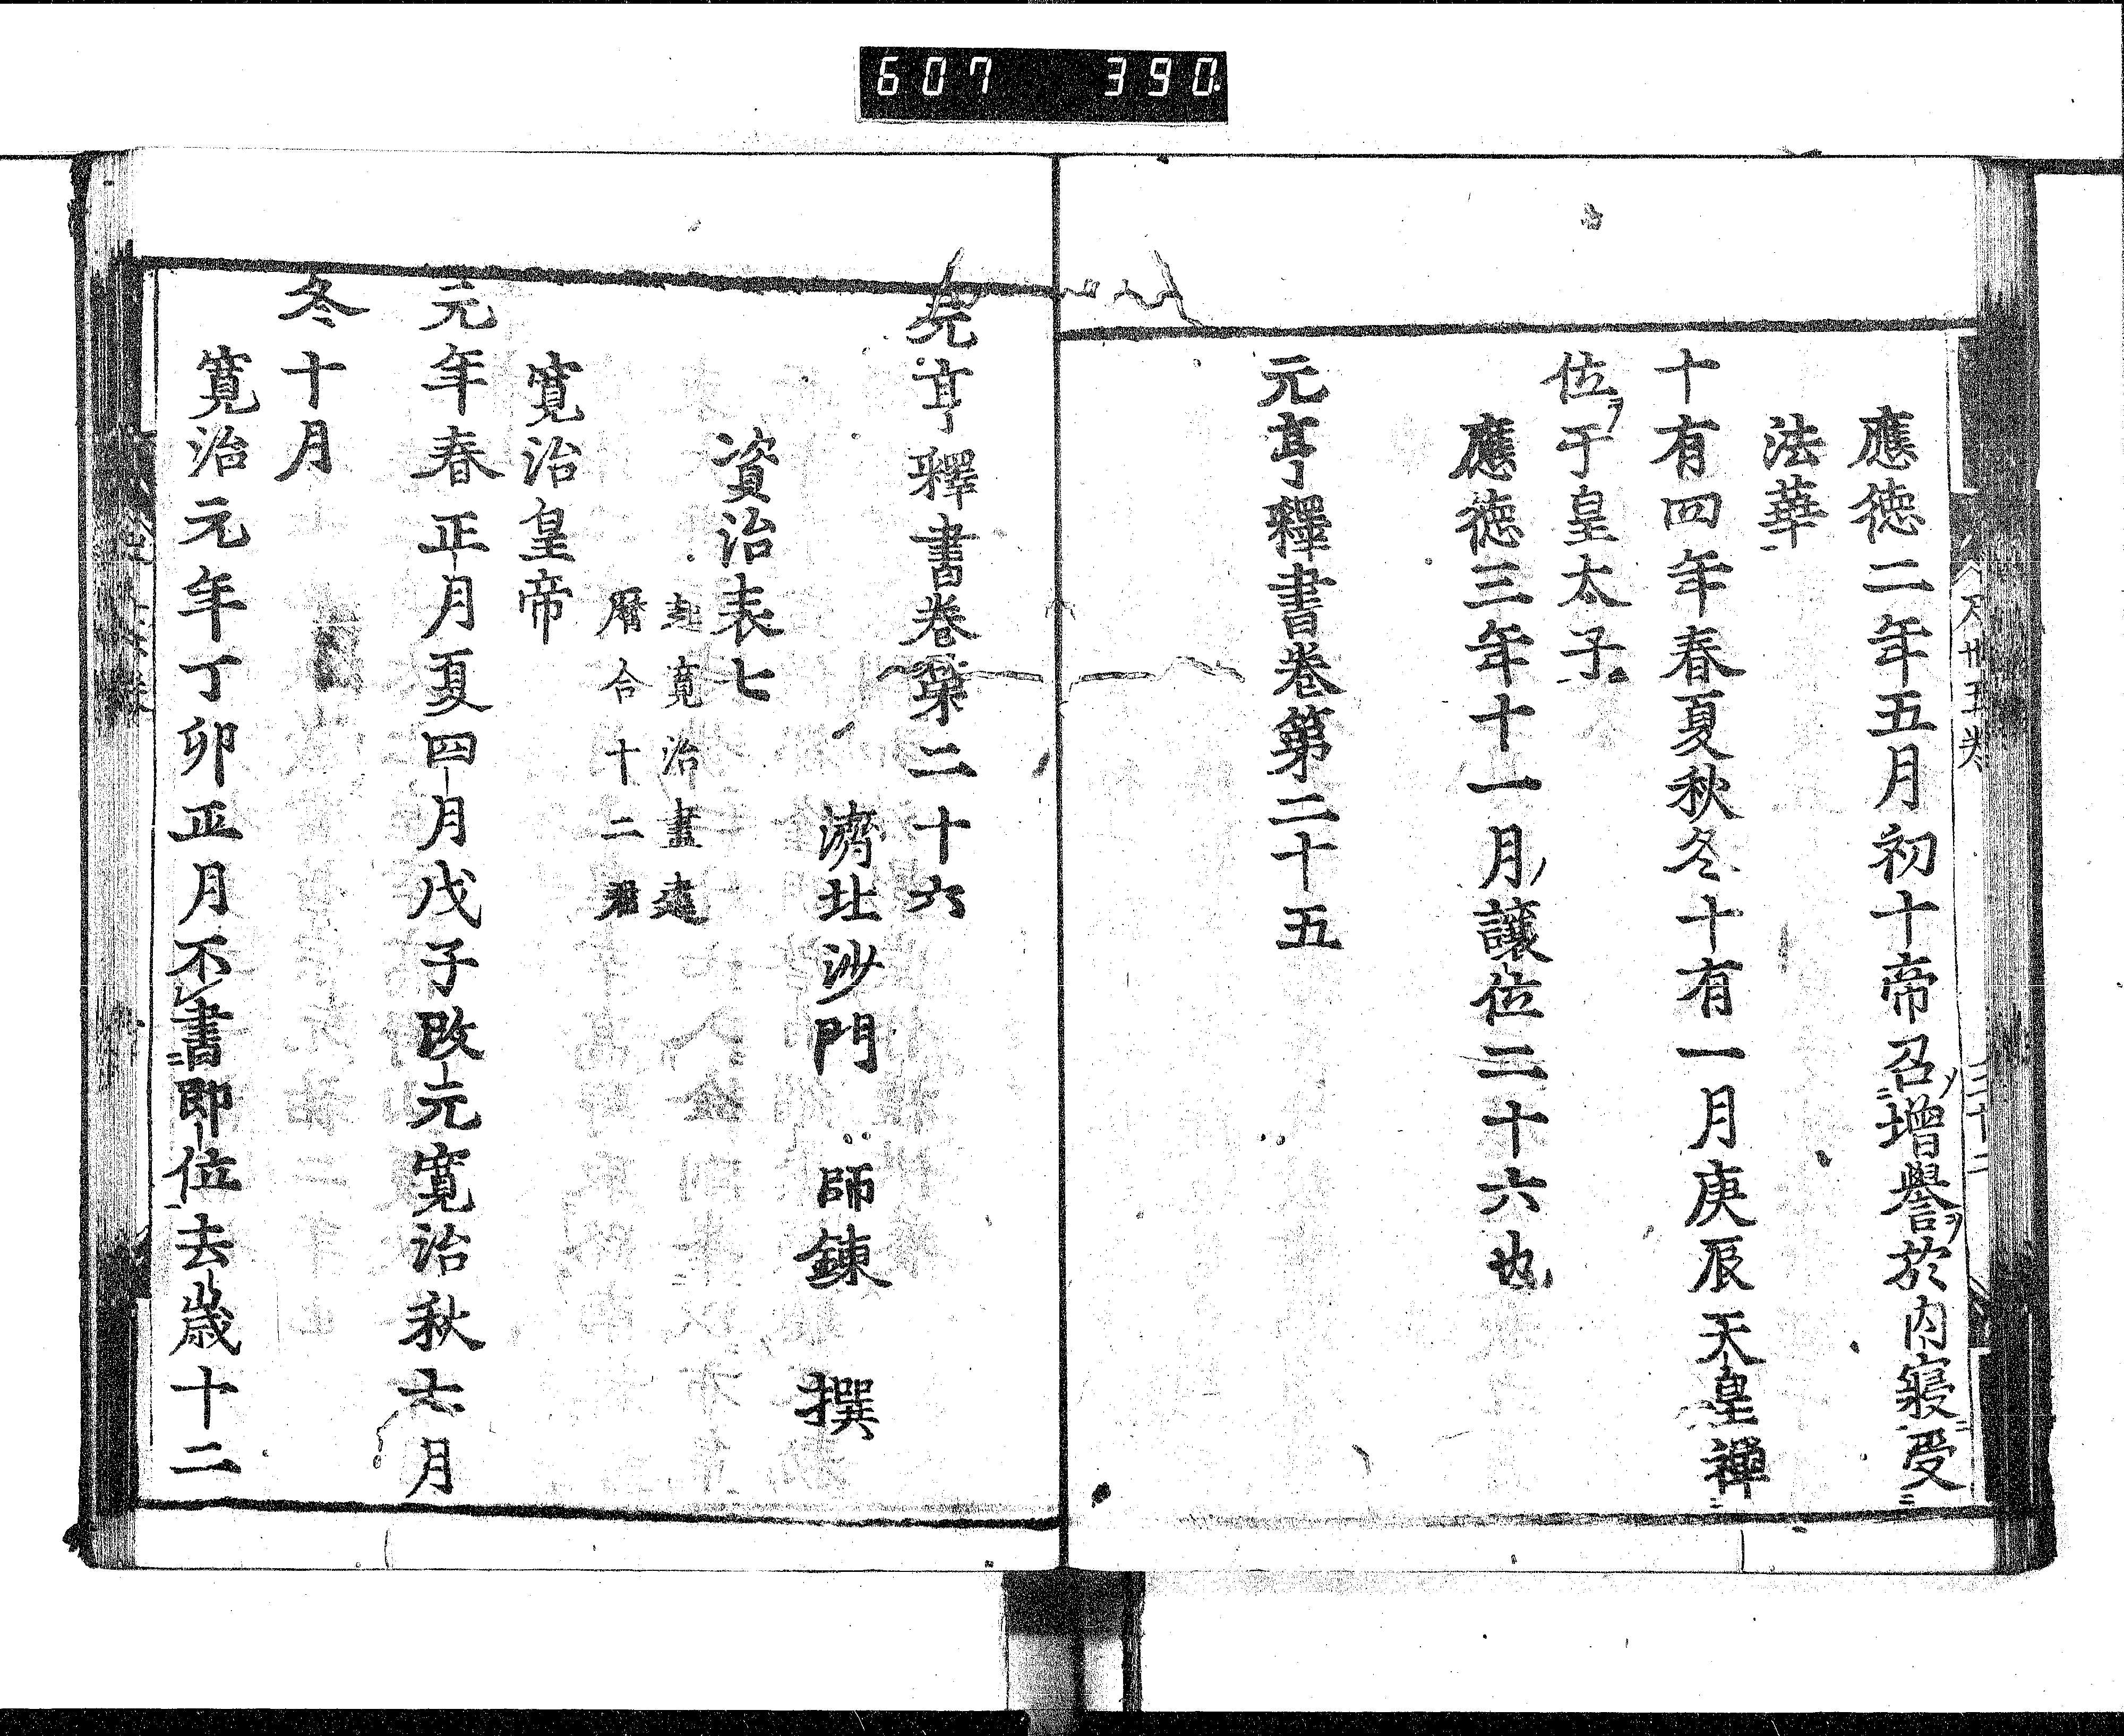 607 390
應徳二年五月初十帝召增譽於内寢受
法華
十有四年春夏秋冬十有一月庚辰天皇禅
位于皇太子
應徳三年十一月讓位二十六也
元亨釋書卷第二十五
元亨釋書卷第二十六
濟北沙門 師錬 撰
資治表七
起寛治盡建
曆合十二君
寛治皇帝
元年春正月夏四月戊子改元寛治秋六月
冬十月
寛治元年丁卯正月不書即位去歳十二